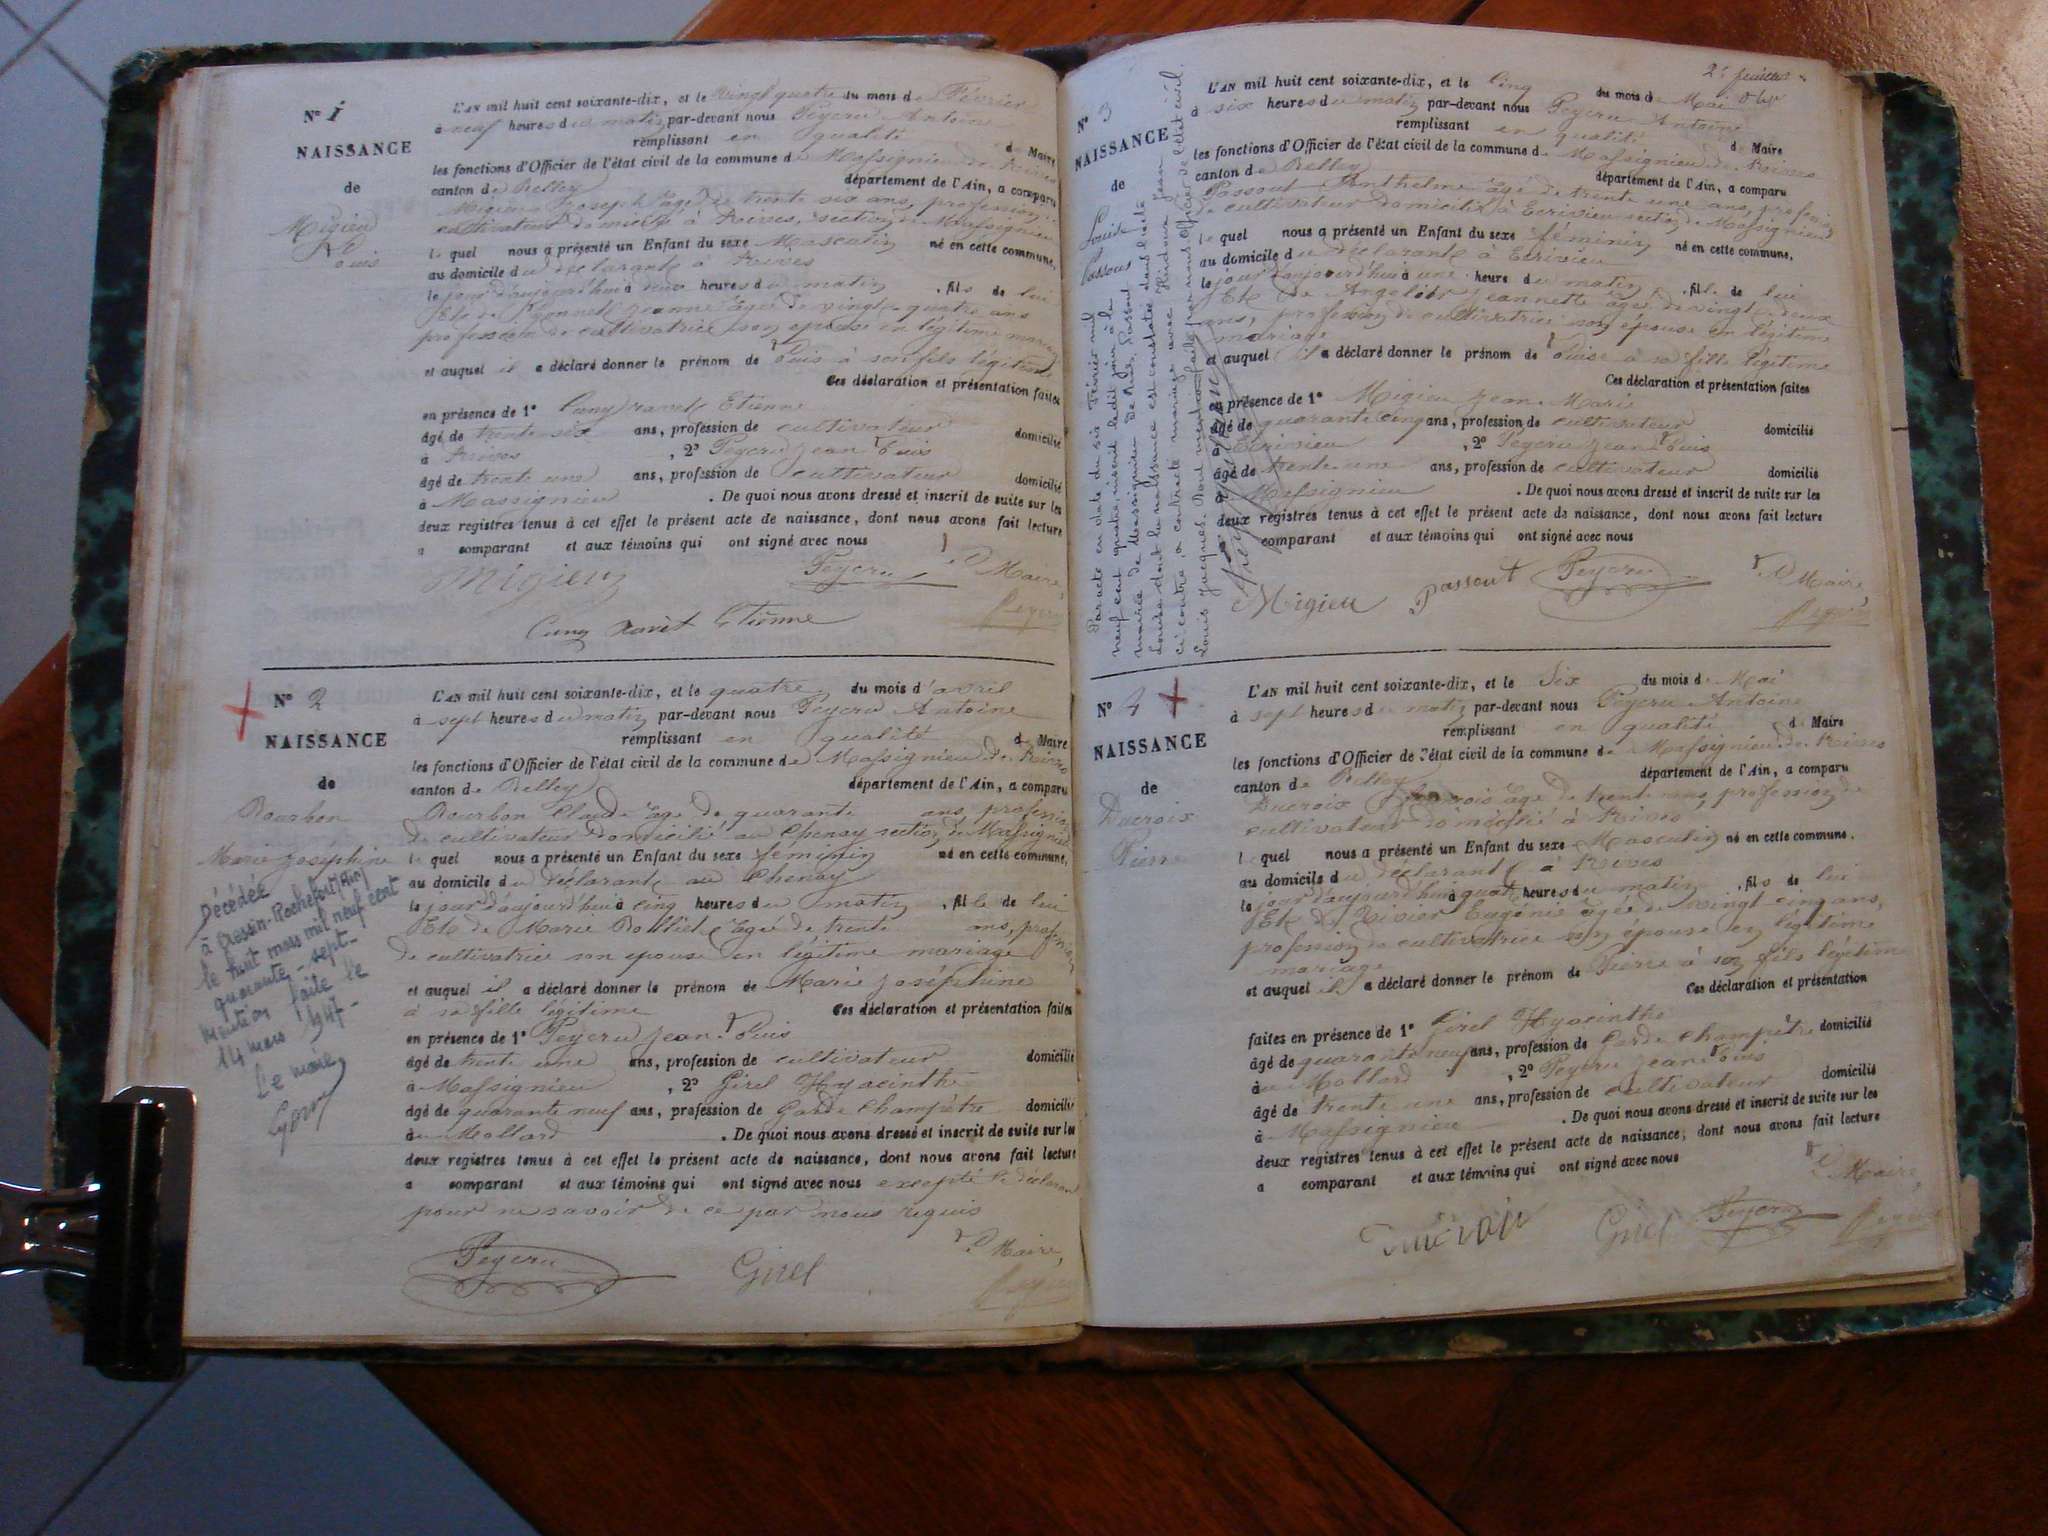 N° 1
NAISSANCE
de
Migieu
Louis
L'AN mil huit cent soixante-dix, et le vingt quatre du mois de Février
à neuf heures du matin par-devant nous Peycru Antoine
remplissant en qualité de Maire
les fonctions d'Officier de l'état civil de la commune de Massignieu de Rives
canton de Belley département de l'Ain, a comparu
Migieu Joseph âgé de trente six ans, profession
cultivateur domicilié à Rives, section de Massignieu
lequel nous a présenté un Enfant du sexe Masculin né en cette commune,
au domicile du déclarant à Rives
le jour d'aujourd'hui à heures du matin, fils de lui
Et de Jeanne âgée de vingt quatre ans
profession de cultivatrice son épouse en légitime mariage
et auquel il a déclaré donner le prénom de Louis à son fils légitime
Ces déclaration et présentation faites
en présence de 1° Cuny ravet Etienne
âgé de trente six ans, profession de cultivateur domicilié
à Rives, 2° Peycru Jean Louis
âgé de trente une ans, profession de cultivateur domicilié
à Massignieu. De quoi nous avons dressé et inscrit de suite sur les
deux registres tenus à cet effet le présent acte de naissance, dont nous avons fait lecture
a comparant et aux témoins qui ont signé avec nous
Le Maire,
Migieu Peycru
Cuny Ravet Etienne
N° 2
NAISSANCE
de
Bourbon
Marie Joséphine
Décédée
à Cressin-Rochefort (Ain)
le huit mars mil neuf cent
quarante-sept-
mention faite le
14 mars 1947-
Le maire,
L'AN mil huit cent soixante-dix, et le quatre du mois d'avril
à sept heures du matin par-devant nous Peycru Antoine
remplissant en qualité de Maire
les fonctions d'Officier de l'état civil de la commune de Massignieu de Rives
canton de Belley département de l'Ain, a comparu
Bourbon Claude âgé de quarante ans, profession
de cultivateur domicilié au Chenay section de Massignieu
lequel nous a présenté un Enfant du sexe féminin né en cette commune,
au domicile du déclarant au Chenay
le jour d'aujourd'hui à cinq heures du matin, fille de lui
Et de Marie âgée de trente ans, profession
de cultivatrice son épouse en légitime mariage
et auquel il a déclaré donner le prénom de Marie Joséphine
à sa fille légitime Ces déclaration et présentation faites
en présence de 1° Peycru Jean Louis
âgé de trente une ans, profession de cultivateur domicilié
à Massignieu, 2° Girel Hyacinthe
âgé de quarante neuf ans, profession de Garde Champêtre domicilié
à Mollard. De quoi nous avons dressé et inscrit de suite sur les
deux registres tenus à cet effet le présent acte de naissance, dont nous avons fait lecture
a comparant et aux témoins qui ont signé avec nous excepté le déclarant
pour ne savoir de ce par nous requis
Le Maire,
Peycru Girel
2e feuillet
N° 3
NAISSANCE
de
Louise
Passout
Par acte en date du six Février mil
neuf cent quatre inscrit ledit jour à la
mairie de Massignieu de Rives, Passout
Louise dont la naissance est constatée dans l'acte
ci contre, a contracté mariage avec Jean
Louis Jacques. Dont mention faite par nous Officier de l'état civil.
L'AN mil huit cent soixante-dix, et le cinq du mois de Mai
à six heures du matin par-devant nous Peycru Antoine
remplissant en qualité de Maire
les fonctions d'Officier de l'état civil de la commune de Massignieu de Rives
canton de Belley département de l'Ain, a comparu
Passout Anthelme âgé de trente une ans, profession
de cultivateur domicilié à Ecrivieu section de Massignieu
lequel nous a présenté un Enfant du sexe féminin né en cette commune,
au domicile du déclarant à Ecrivieu
le jour d'aujourd'hui à une heure du matin, fille de lui
Et de Jeannette âgée de vingt deux
ans, profession de cultivatrice son épouse en légitime
mariage
et auquel il a déclaré donner le prénom de Louise à sa fille légitime
Ces déclaration et présentation faites
en présence de 1° Migieu Jean Marie
âgé de quarante cinq ans, profession de cultivateur domicilié
à Ecrivieu, 2° Peycru Jean Louis
âgé de trente une ans, profession de cultivateur domicilié
à Massignieu. De quoi nous avons dressé et inscrit de suite sur les
deux registres tenus à cet effet le présent acte de naissance, dont nous avons fait lecture
a comparant et aux témoins qui ont signé avec nous
Le Maire,
Migieu passout Peycru
N° 4
NAISSANCE
de
Ducroix
Pierre
L'AN mil huit cent soixante-dix, et le Six du mois de Mai
à sept heures du matin par-devant nous Peycru Antoine
remplissant en qualité de Maire
les fonctions d'Officier de l'état civil de la commune de Massignieu de Rives
canton de Belley département de l'Ain, a comparu
Ducroix François âgé de trente ans, profession de
cultivateur domicilié à Rives
lequel nous a présenté un Enfant du sexe Masculin né en cette commune,
au domicile du déclarant à Rives
le jour d'aujourd'hui à quatre heures du matin, fils de lui
Et de Eugénie âgée de vingt cinq ans,
profession de cultivatrice son épouse en légitime
mariage
et auquel il a déclaré donner le prénom de Pierre à son fils légitime
Ces déclaration et présentation
faites en présence de 1° Girel Hyacinthe
âgé de quarante neuf ans, profession de Garde Champêtre domicilié
à Mollard, 2° Peycru Jean Louis
âgé de trente une ans, profession de cultivateur domicilié
à Massignieu. De quoi nous avons dressé et inscrit de suite sur les
deux registres tenus à cet effet le présent acte de naissance, dont nous avons fait lecture
a comparant et aux témoins qui ont signé avec nous
Le Maire,
Ducroix Girel Peycru